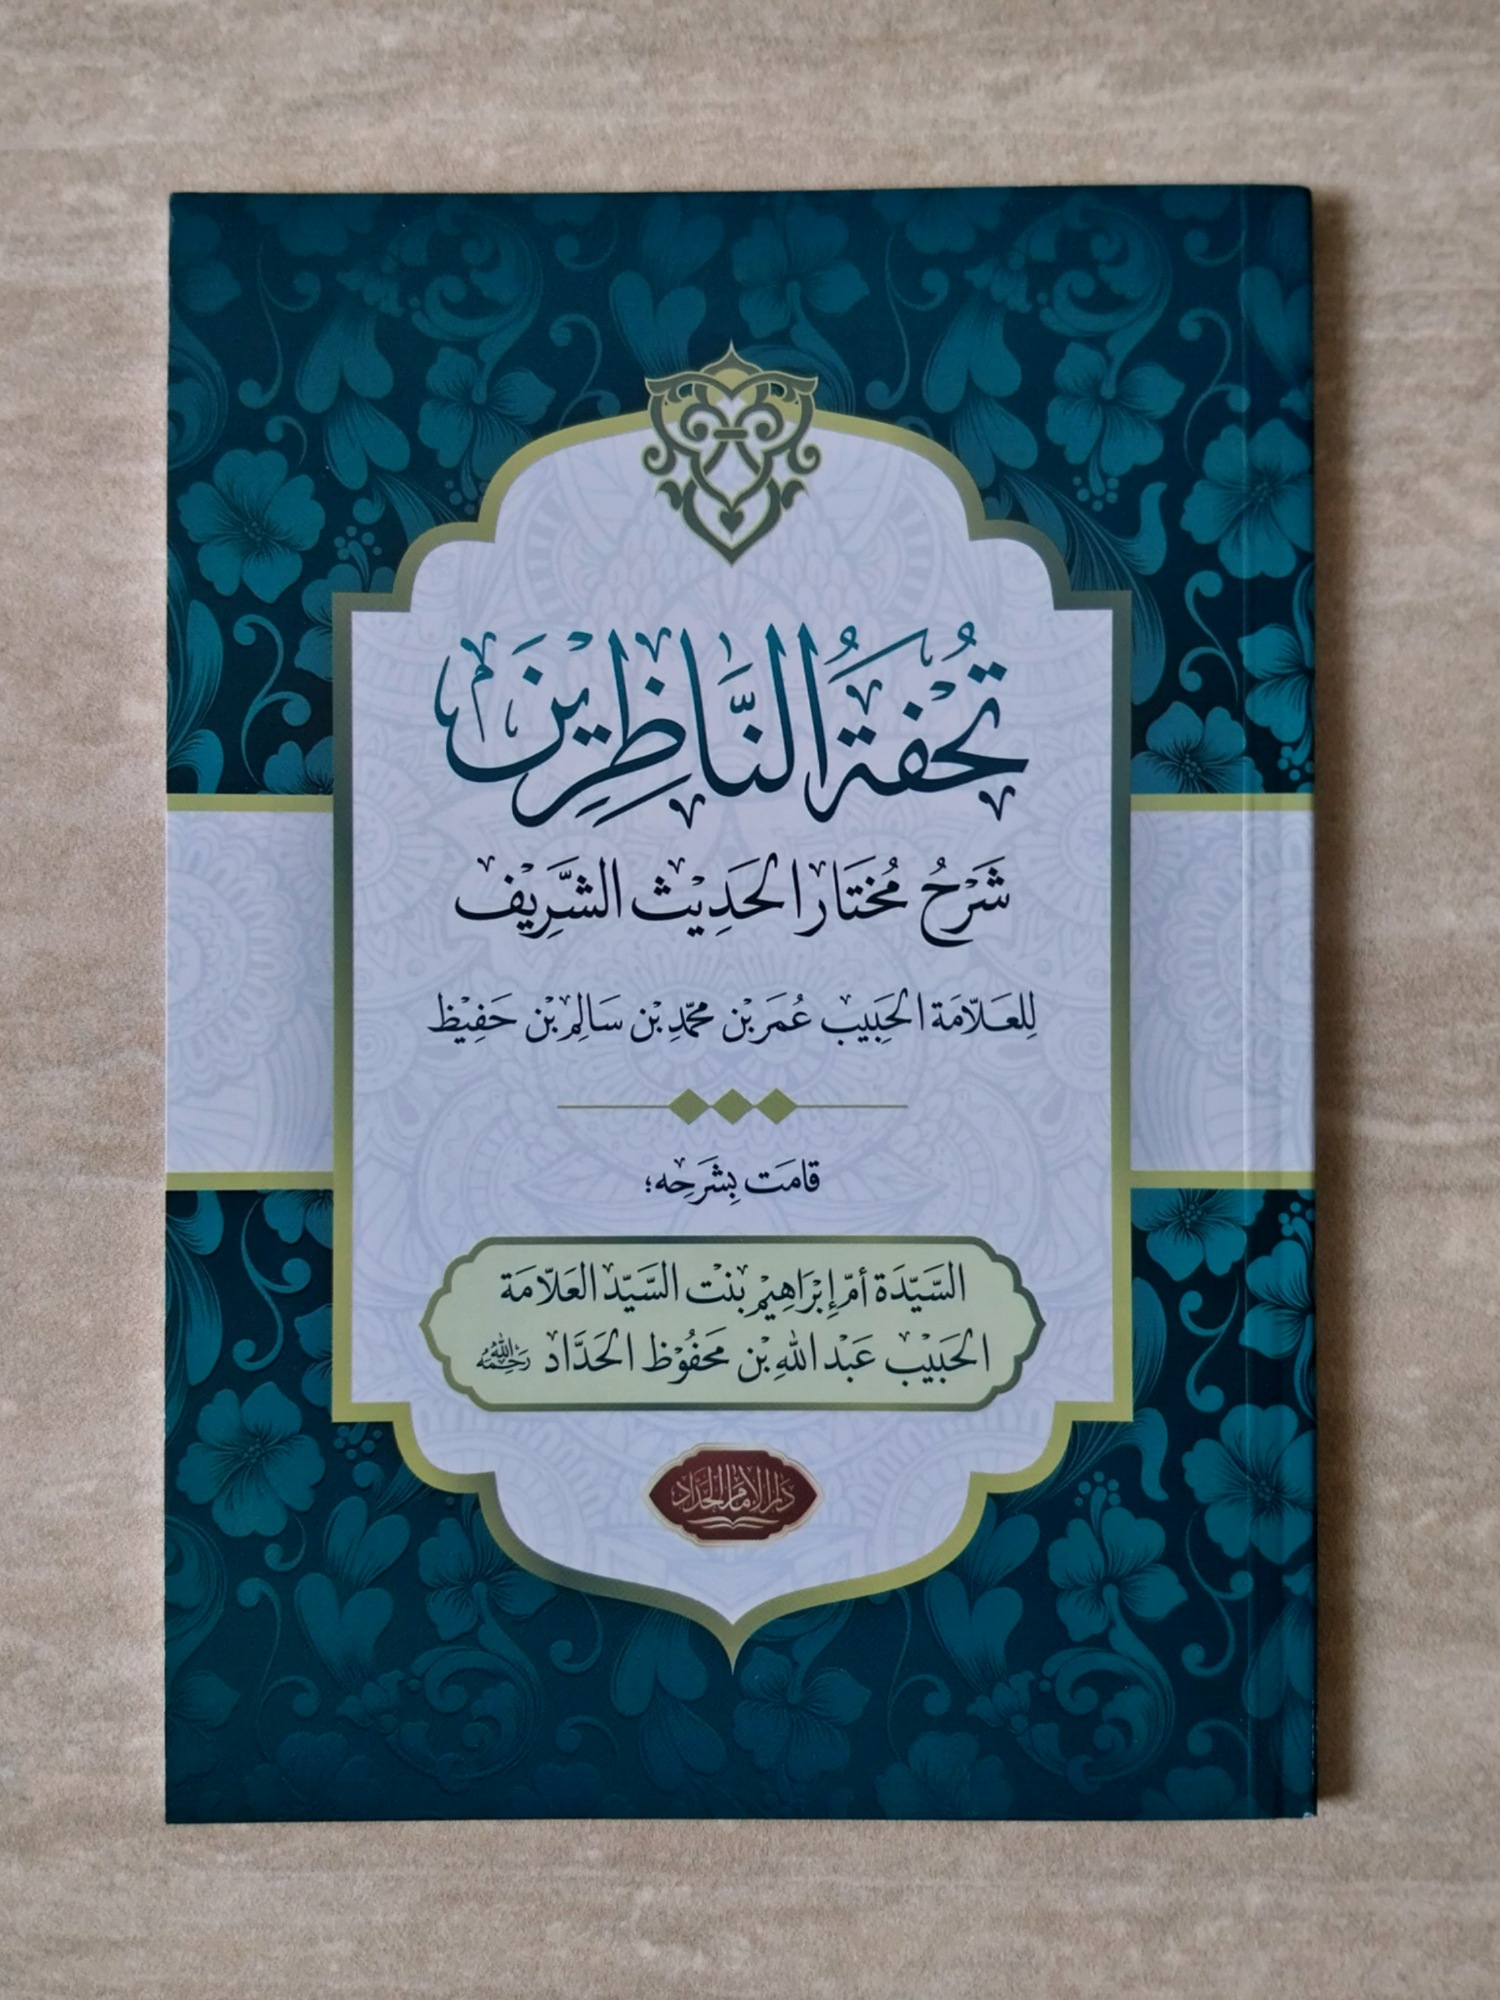 تُحْفَةُ النَّاظِرِيْنَ
شَرْحُ مُخْتَار الحَدِيْث الشَّرِيْف
لِلعَلَّامَة الحَبِيْب عُمَر بْن محمّد بْن سَالِم بْن حَفِيْظ
قامَت بِشَرْحِه؛
السَّيِّدَة أمّ إِبْرَاهِيْم بنْت السَّيِّد العَلَّامَة
الحَبِيْب عَبْد اللهِ بْن مَحفُوْظ الحَدَّاد رَحِمَهُ اللهُ
دَارُ الإمَام الحَدَّاد